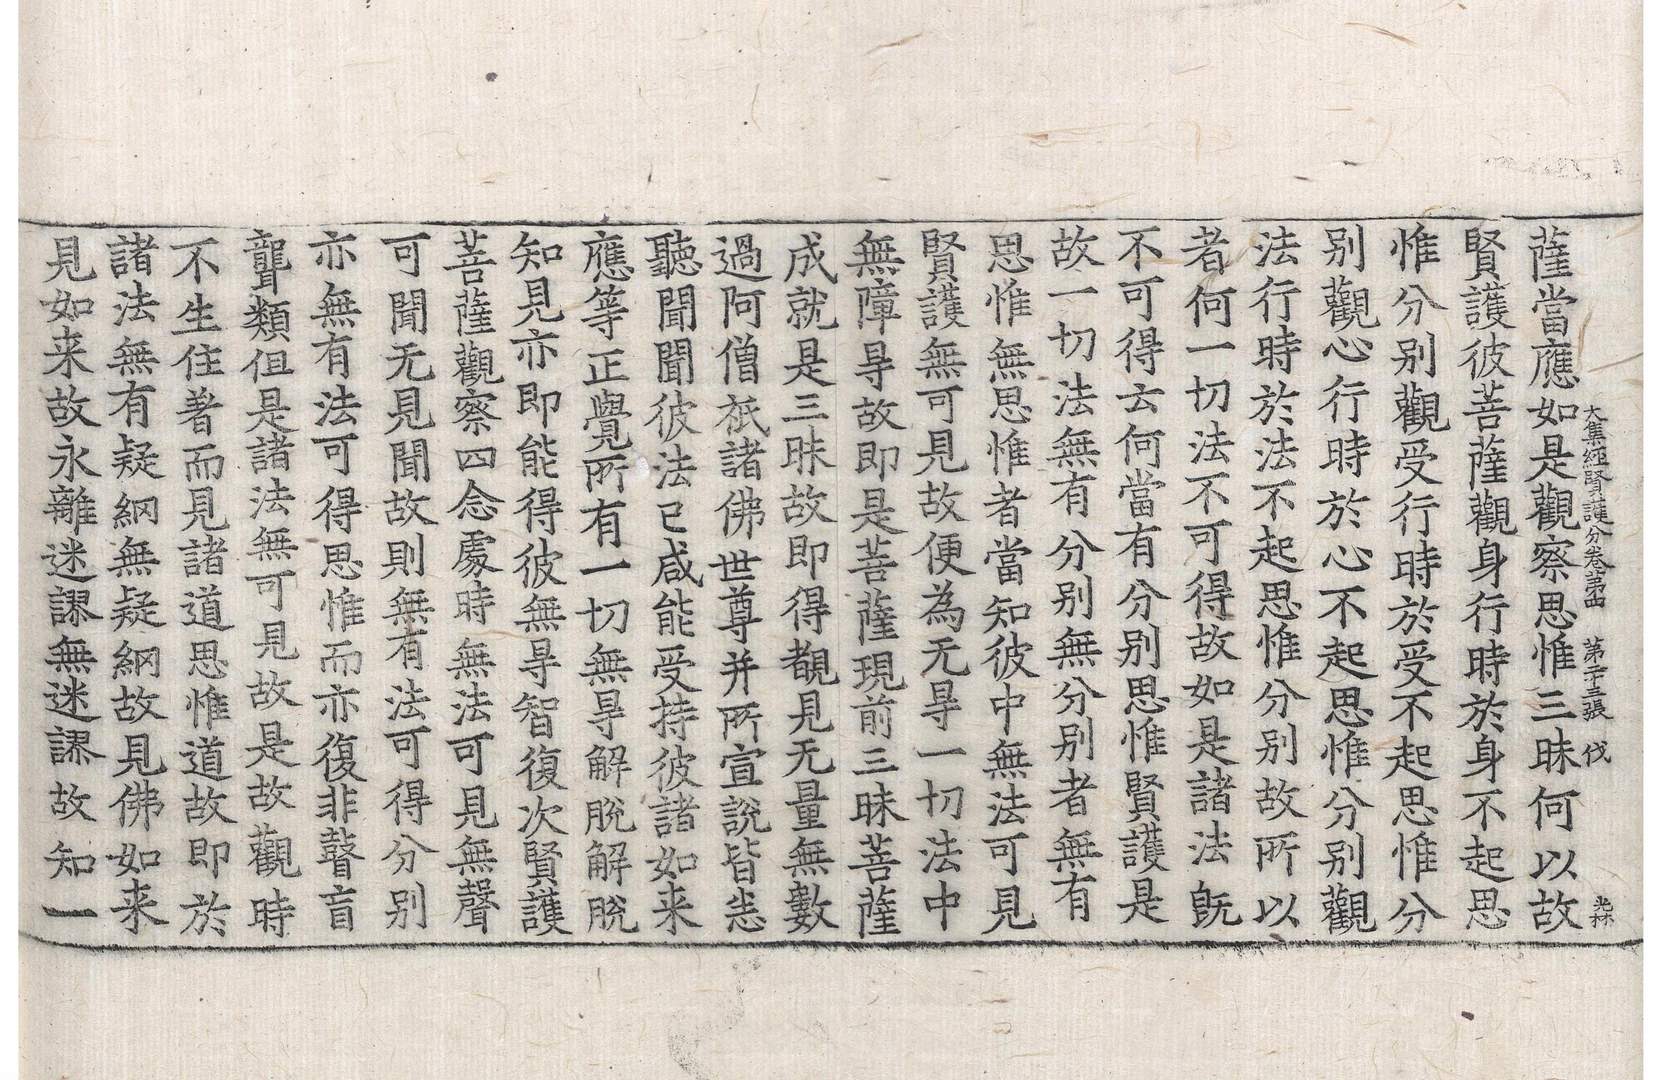 大集経賢護分卷第四　第二十三張　伐　光林
薩當應如是觀察思惟三昧何以故
賢護彼菩薩觀身行時於身不起思
惟分别觀受行時於受不起思惟分
别觀心行時於心不起思惟分别觀
法行時於法不起思惟分别故所以
者何一切法不可得故如是諸法旣
不可得云何當有分别思惟賢護是
故一切法無有分别無分别者無有
思惟無思惟者當知彼中無法可見
賢護無可見故便為无㝵一切法中
無障㝵故即是菩薩現前三昧菩薩
成就是三昧故即得覩見无量無數
過阿僧祇諸佛世尊并所宣說皆悉
聽聞聞彼法已咸能受持彼諸如来
應等正覺所有一切無㝵解脫解脫
知見亦即能得彼無㝵智復次賢護
菩薩觀察四念處時無法可見無聲
可聞无見聞故則無有法可得分别
亦無有法可得思惟而亦復非瞽盲
聾類但是諸法無可見故是故觀時
不生住著而見諸道思惟道故即於
諸法無有疑網無疑網故見佛如来
見如来故永離迷謬無迷謬故知一